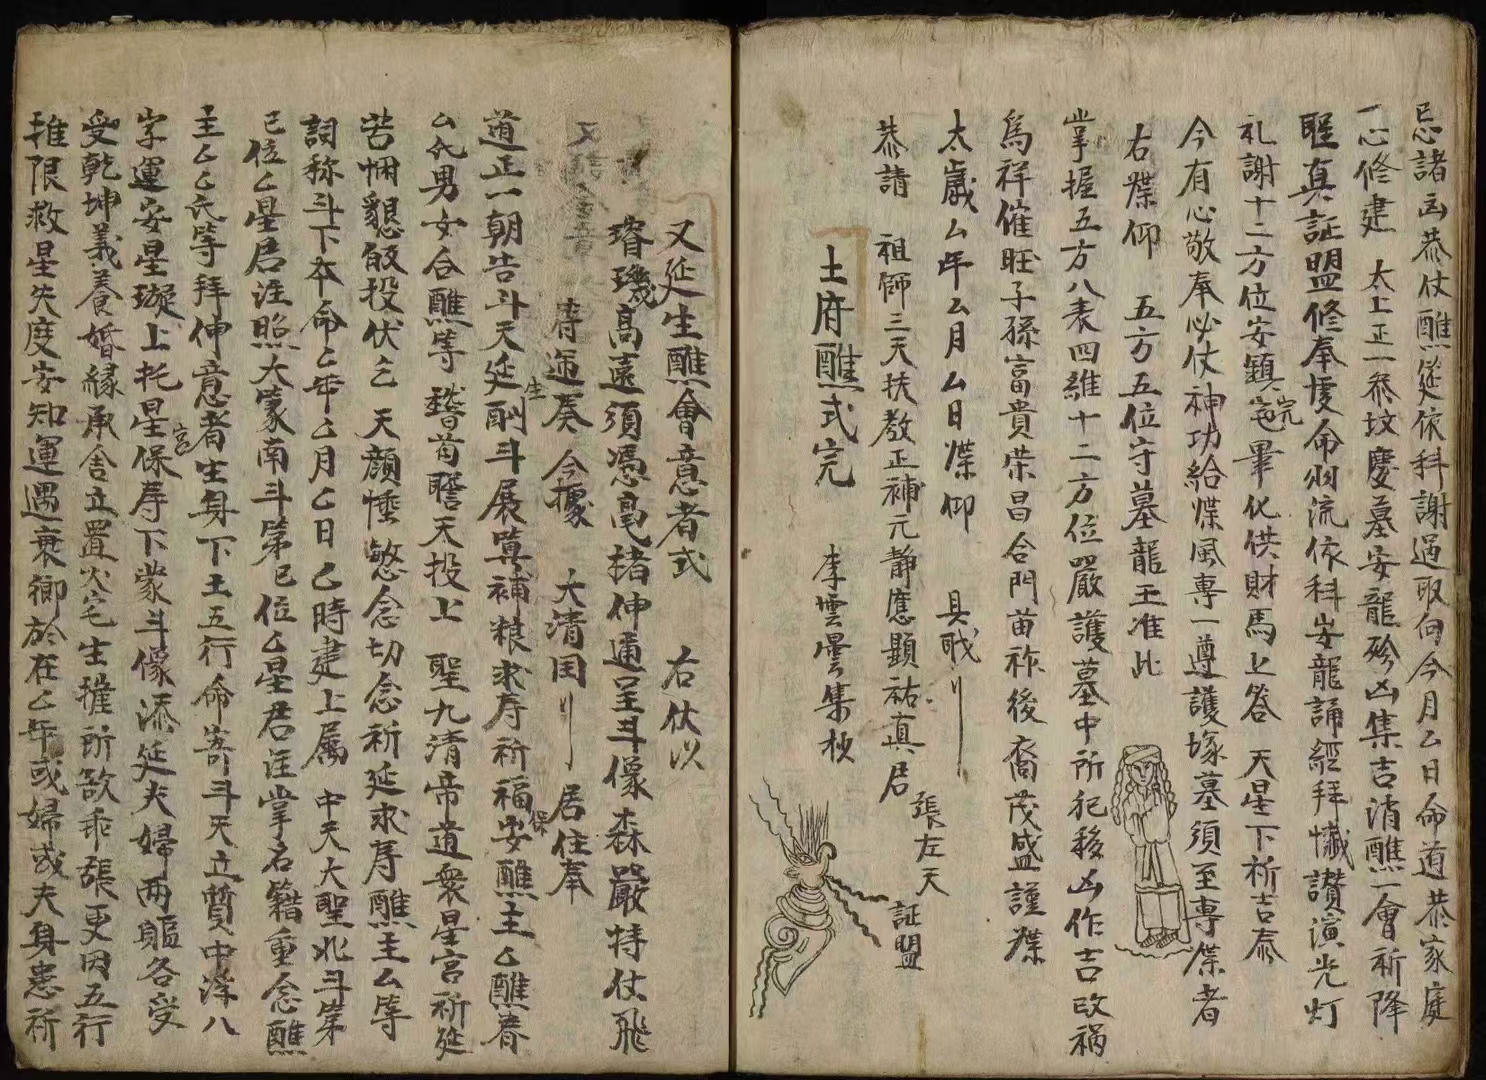 忌諸凶恭仗醮筵依科謝過取向今月厶日命道恭家庭
一心修建　太上正一叅坟慶墓安龍殄凶集吉清醮一會祈降
聖真証盟修奉虔命羽流依科安龍誦經拜懺讃演光灯
礼謝十二方位安鎮完宅畢化供財馬上答　天星下祈吉泰
今有心敬奉必仗神功給牒風專一遵護塚墓須至專牒者
右牒仰　五方五位守墓龍王准此
掌握五方八表四維十二方位嚴護墓中所犯移凶作吉改禍
爲祥催旺子孫富貴荣昌合門苗祚後裔茂盛謹牒
太歲厶年厶月厶日牒仰　具戢
恭請　祖師三天扶教正補元静應顯祐真君
張左天　証盟
土府醮式完　李雲曇集抄
又延生醮會意者式　右伏以
璿璣高遠須憑亳楮伸逼呈斗像森嚴特仗飛
符遞奏今據　大清囯　居住奉
道正一朝告斗天延生酬斗展真補粮求寿祈福安保醮主厶醮眷
厶氏男女合醮等　稽首瞻天投上　聖九清帝道衆星宮祈延
苦悃懇般投伏乞　天顔埀愍念切念祈延求寿醮主厶等
詞称斗下本命乙年乙月乙日乙時建上属　中天大聖北斗第
已位乙星君注照大蒙南斗第已位乙星君注掌名籍重念醮
主乙乙氏等拜伸意者生身下土五行命寄斗天立質中浮八
字運安星璇上托星宮保寿下蒙斗像添延夫婦兩軀各受
受乾坤義養婚縁承舍立置火宅生推所敘乖張更因五行
推限救星失度安知運遇衰鄉於在乙年或婦或夫身患祈